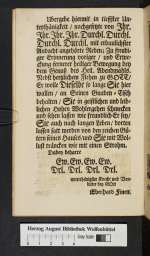 Ubergebe hiermit in tieffster Un-
terthänigkeit / nechgesetzte von Jhr.
Jhr. Jhr. Jhr. Durchl. Durchl.
Durchl. Durchl. mit erbaulichster
Andacht angehörte Reden / zu freudi-
ger Erinnerung voriger / und Erwe-
ckung fernerer heiliger Bewegung bey
dem Genuß des Heil. Abendmahls.
Nebst hertzlichem Flehen zu GOtt:
Er wolle Dieselbe so lange Sie hier
wallen / an Seiner Gnaden-Tisch
behalten / Sie in geistlichen und leib-
lichen Hohen Wohlergehen schmecken
und sehen lassen wie freundlich Er sey /
Sie auch nach langem Leben / dorten
lassen satt werden von den reichen Gü-
tern seines Hauses und Sie mit Wol-
lust träncken wie mit einem Strohm.
Dahin beharre
Ew. Ew. Ew. Ew.
Drl. Drl. Drl. Drl.
unterthänigster Knecht und Vor-
bitter bey GOtt
Eberhard Finen.
Herzog August Bibliothek Wolfenbüttel